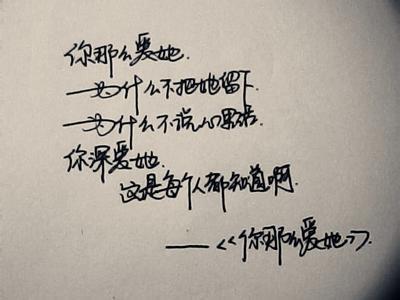 你那么爱她.
—为什么不把她留下
—为什么不说心里话.
你深爱她.
这是每个人都知道啊.
——<<你那么爱她>>.